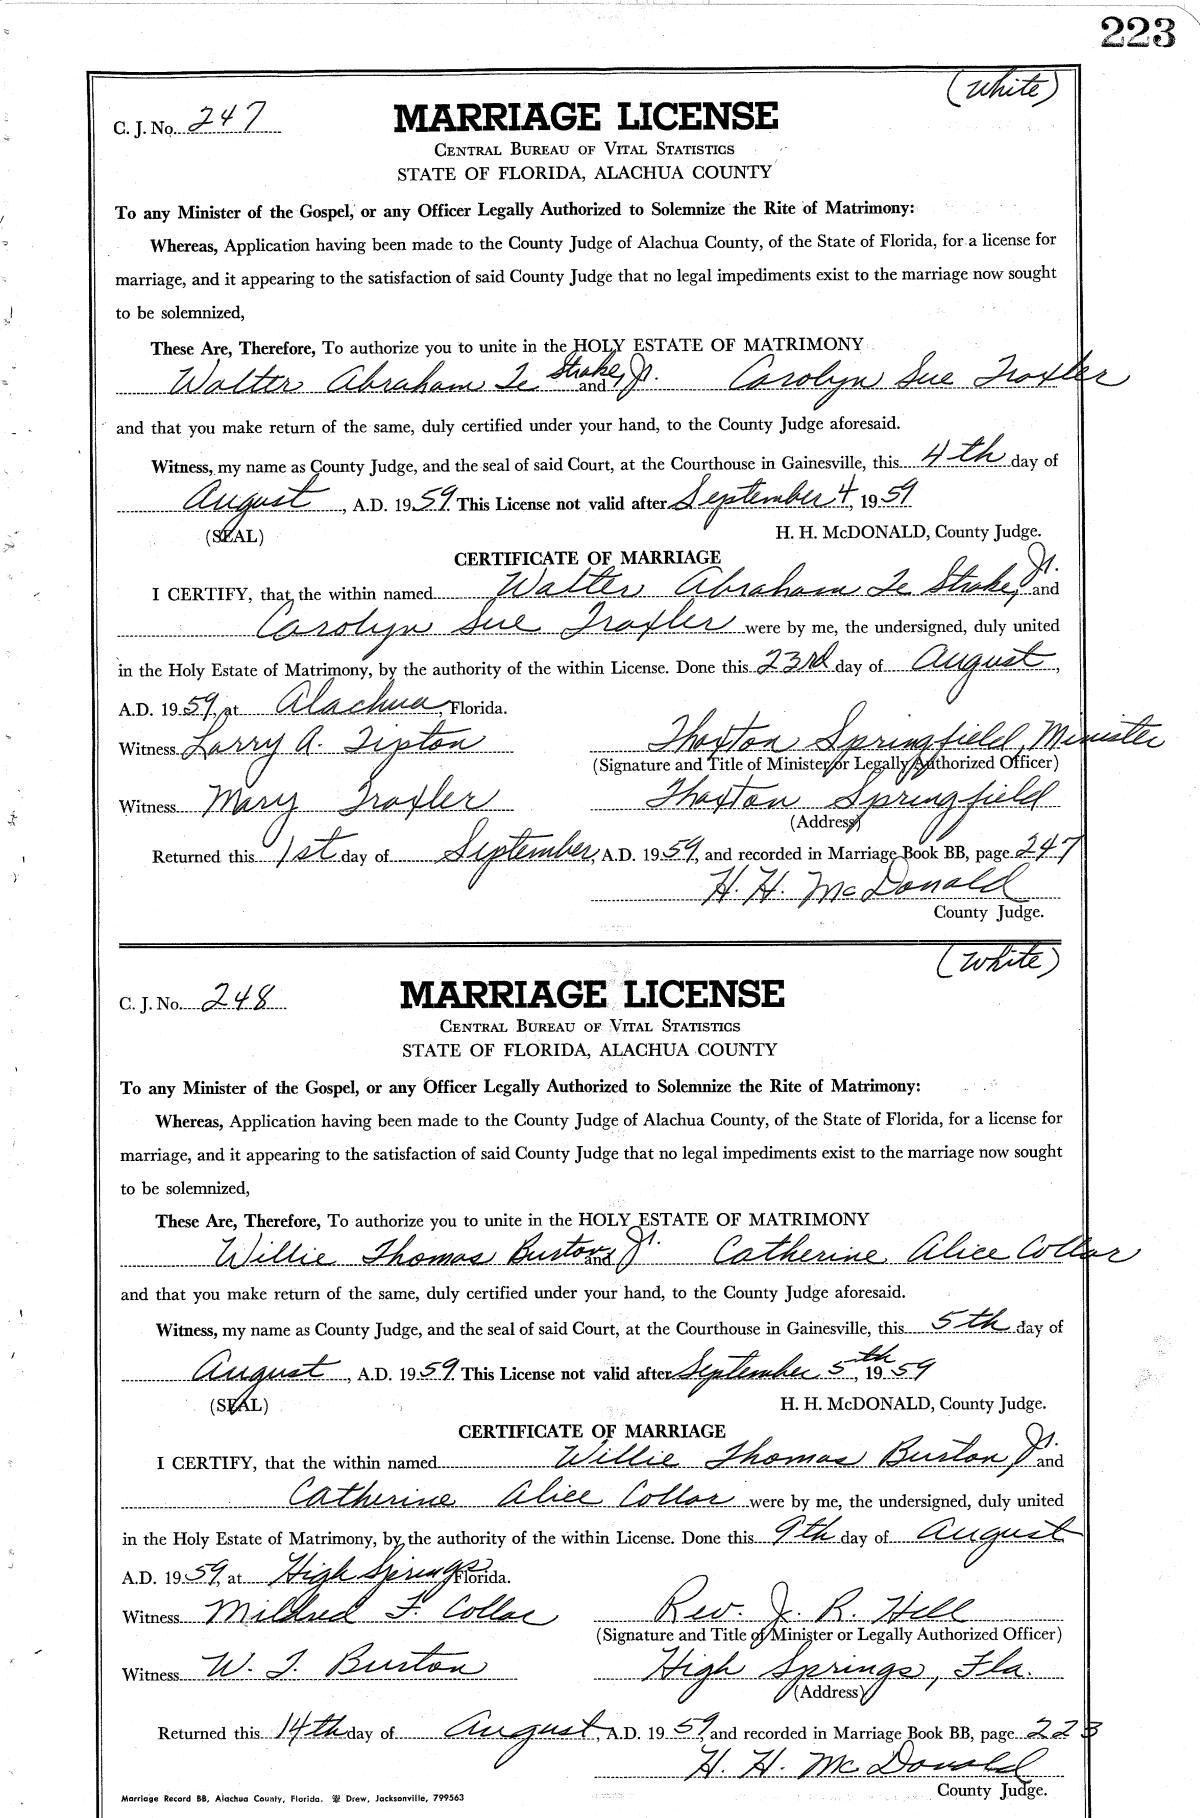 223
(White)
C. J. No. 247
MARRIAGE LICENSE
CENTRAL BUREAU OF VITAL STATISTICS
STATE OF FLORIDA, ALACHUA COUNTY
To any Minister of the Gospel, or any Officer Legally Authorized to Solemnize the Rite of Matrimony:
Whereas, Application having been made to the County Judge of Alachua County, of the State of Florida, for a license for
marriage, and it appearing to the satisfaction of said County Judge that no legal impediments exist to the marriage now sought
to be solemnized,
These Are, Therefore, To authorize you to unite in the HOLY ESTATE OF MATRIMONY
Walter Abraham Te Strake, Jr. and Carolyn Sue Traxler
and that you make return of the same, duly certified under your hand, to the County Judge aforesaid.
Witness, my name as County Judge, and the seal of said Court, at the Courthouse in Gainesville, this 4th day of
August, A.D. 1959. This License not valid after September 4, 1959
(SEAL) H. H. McDONALD, County Judge.
CERTIFICATE OF MARRIAGE
I CERTIFY, that the within named Walter Abraham Te Strake, Jr. and
Carolyn Sue Traxler were by me, the undersigned, duly united
in the Holy Estate of Matrimony, by the authority of the within License. Done this 23rd day of August,
A.D. 1959, at Alachua, Florida.
Witness Larry A. Tipton Thaxton Springfield, Minister
(Signature and Title of Minister or Legally Authorized Officer)
Witness Mary Traxler Thaxton Springfield
(Address)
Returned this 1st day of September, A.D. 1959, and recorded in Marriage Book BB, page 247
H. H. McDonald
County Judge.
(White)
C. J. No. 248
MARRIAGE LICENSE
CENTRAL BUREAU OF VITAL STATISTICS
STATE OF FLORIDA, ALACHUA COUNTY
To any Minister of the Gospel, or any Officer Legally Authorized to Solemnize the Rite of Matrimony:
Whereas, Application having been made to the County Judge of Alachua County, of the State of Florida, for a license for
marriage, and it appearing to the satisfaction of said County Judge that no legal impediments exist to the marriage now sought
to be solemnized,
These Are, Therefore, To authorize you to unite in the HOLY ESTATE OF MATRIMONY
Willie Thomas Burton, Jr. and Catherine Alice Collar
and that you make return of the same, duly certified under your hand, to the County Judge aforesaid.
Witness, my name as County Judge, and the seal of said Court, at the Courthouse in Gainesville, this 5th day of
August, A.D. 1959. This License not valid after September 5th, 1959
(SEAL) H. H. McDONALD, County Judge.
CERTIFICATE OF MARRIAGE
I CERTIFY, that the within named Willie Thomas Burton, Jr. and
Catherine Alice Collar were by me, the undersigned, duly united
in the Holy Estate of Matrimony, by the authority of the within License. Done this 9th day of August
A.D. 1959, at High Springs Florida.
Witness Mildred F. Collar Rev. J. R. Hill
(Signature and Title of Minister or Legally Authorized Officer)
Witness W. T. Burton High Springs, Fla.
(Address)
Returned this 14th day of August, A.D. 1959, and recorded in Marriage Book BB, page 223
H. H. McDonald
County Judge.
Marriage Record BB, Alachua County, Florida. Drew, Jacksonville, 799563